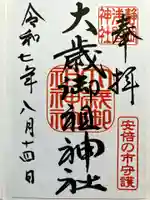 奉拝
大歳御祖神社
令和七年八月十四日
安倍の市守護